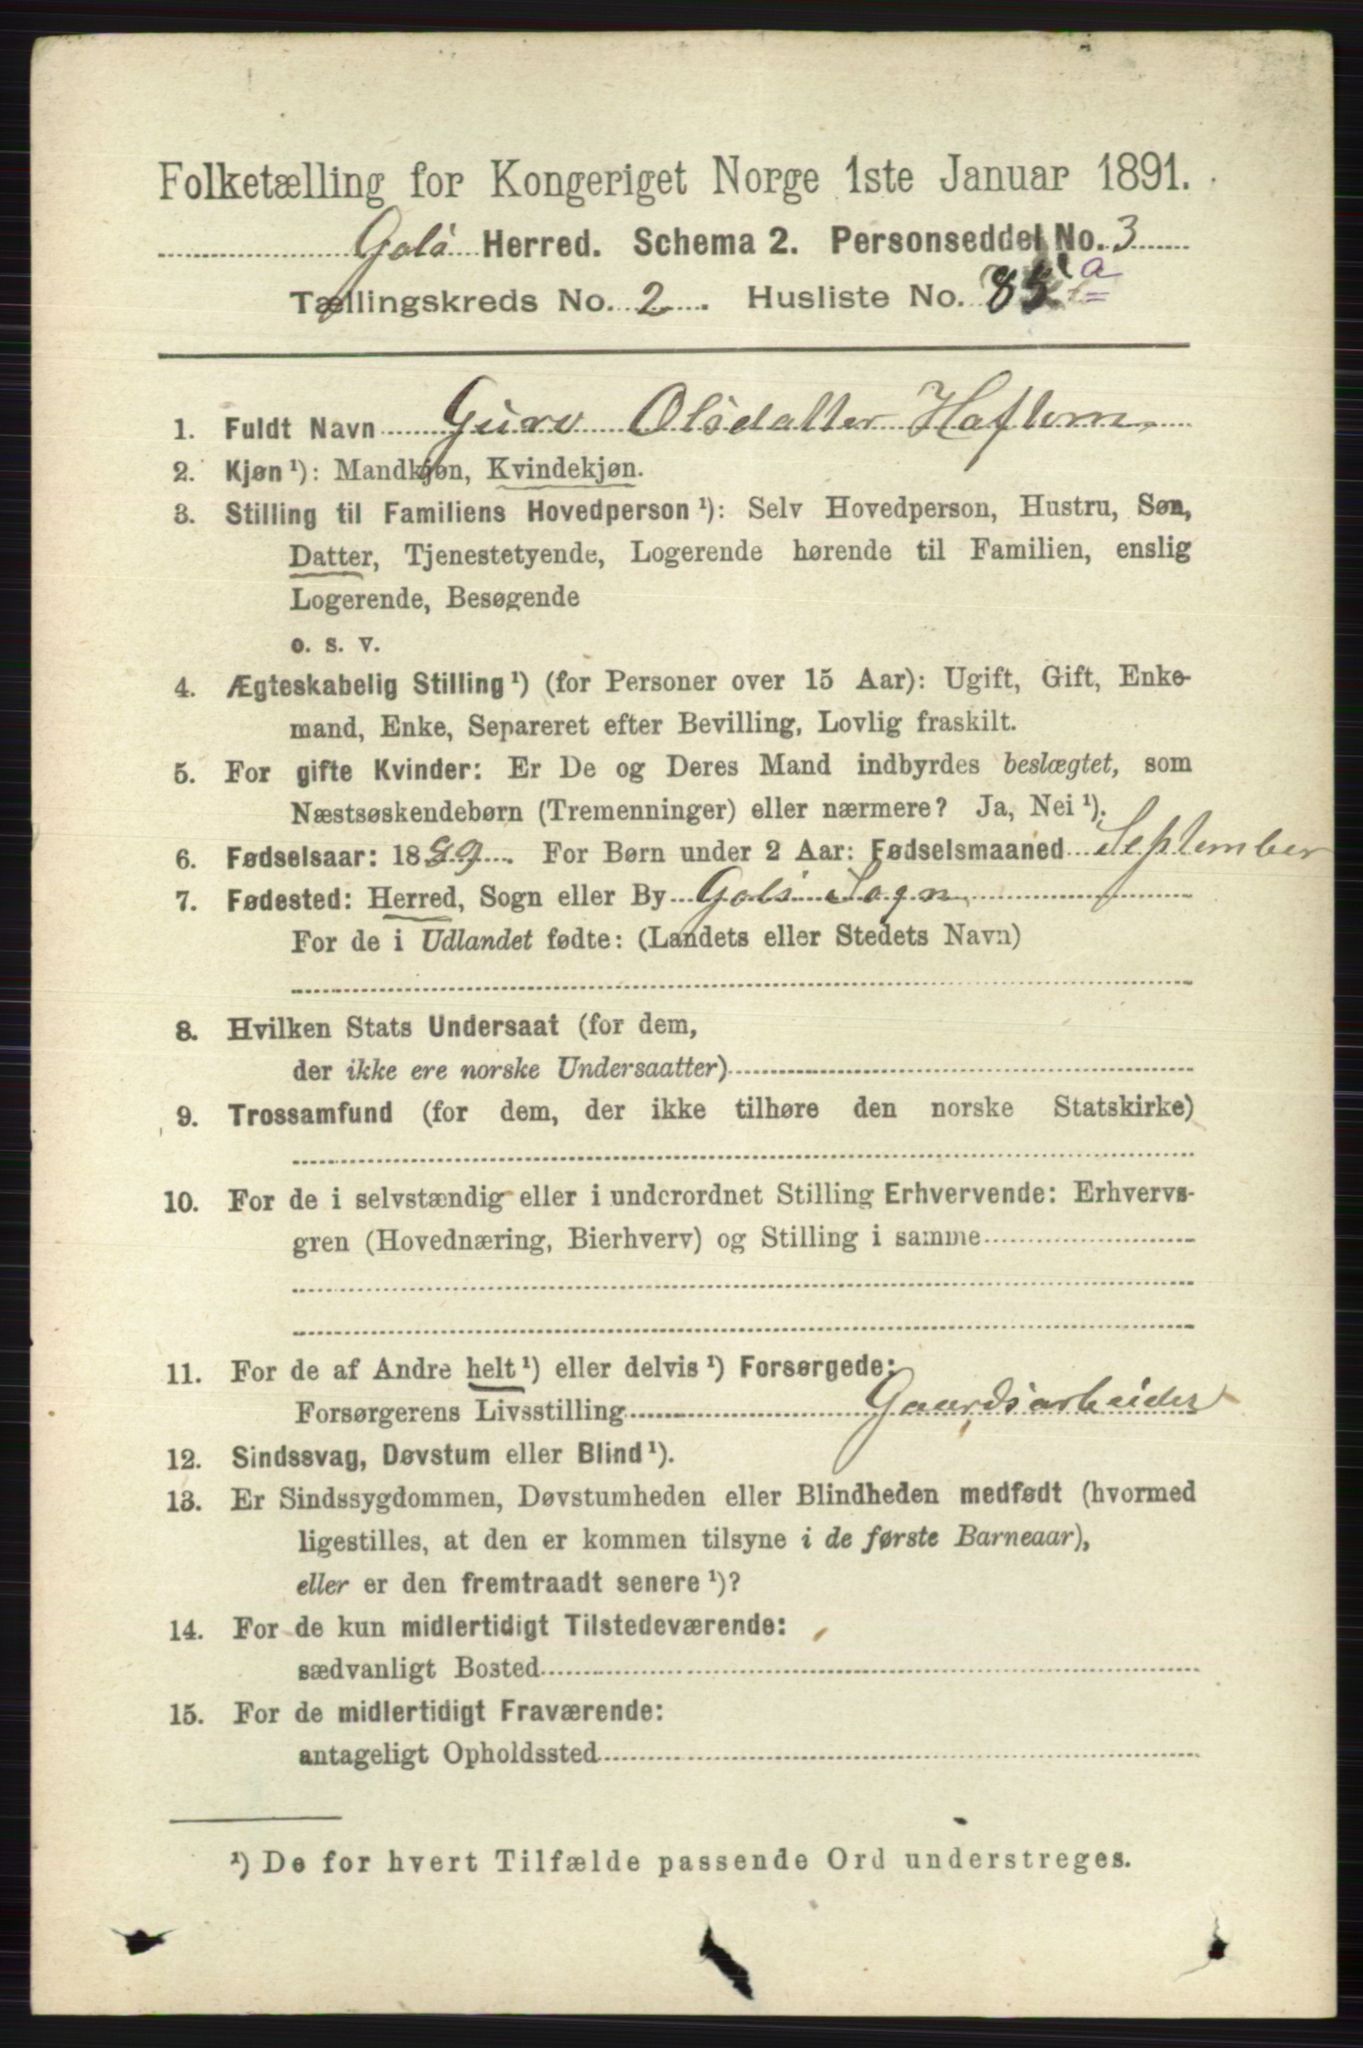 Folketælling for Kongeriget Norge 1ste Januar 1891.
Gols Herred. Schema 2. Personseddel No. 3
Tællingskreds No. 2. Husliste No. 85 a
1. Fuldt Navn Guro Olsdatter Haftern
2. Kjøn ¹): Mandkjøn, Kvindekjøn.
3. Stilling til Familiens Hovedperson ¹): Selv Hovedperson, Hustru, Søn,
Datter, Tjenestetyende, Logerende hørende til Familien, enslig
Logerende, Besøgende
o. s. v.
4. Ægteskabelig Stilling ¹) (for Personer over 15 Aar): Ugift, Gift, Enke-
mand, Enke, Separeret efter Bevilling, Lovlig fraskilt.
5. For gifte Kvinder: Er De og Deres Mand indbyrdes beslægtet, som
Næstsøskendebørn (Tremenninger) eller nærmere? Ja, Nei ¹).
6. Fødselsaar: 1889. For Børn under 2 Aar: Fødselsmaaned September
7. Fødested: Herred, Sogn eller By Gols Sogn
For de i Udlandet fødte: (Landets eller Stedets Navn)
8. Hvilken Stats Undersaat (for dem,
der ikke ere norske Undersaatter)
9. Trossamfund (for dem, der ikke tilhøre den norske Statskirke)
10. For de i selvstændig eller i underordnet Stilling Erhvervende: Erhvervs-
gren (Hovednæring, Bierhverv) og Stilling i samme
11. For de af Andre helt ¹) eller delvis ¹) Forsørgede:
Forsørgerens Livsstilling Gaardsarbeider
12. Sindssvag, Døvstum eller Blind ¹).
13. Er Sindssygdommen, Døvstumheden eller Blindheden medfødt (hvormed
ligestilles, at den er kommen tilsyne i de første Barneaar),
eller er den fremtraadt senere ¹)?
14. For de kun midlertidigt Tilstedeværende:
sædvanligt Bosted
15. For de midlertidigt Fraværende:
antageligt Opholdssted
¹) De for hvert Tilfælde passende Ord understreges.